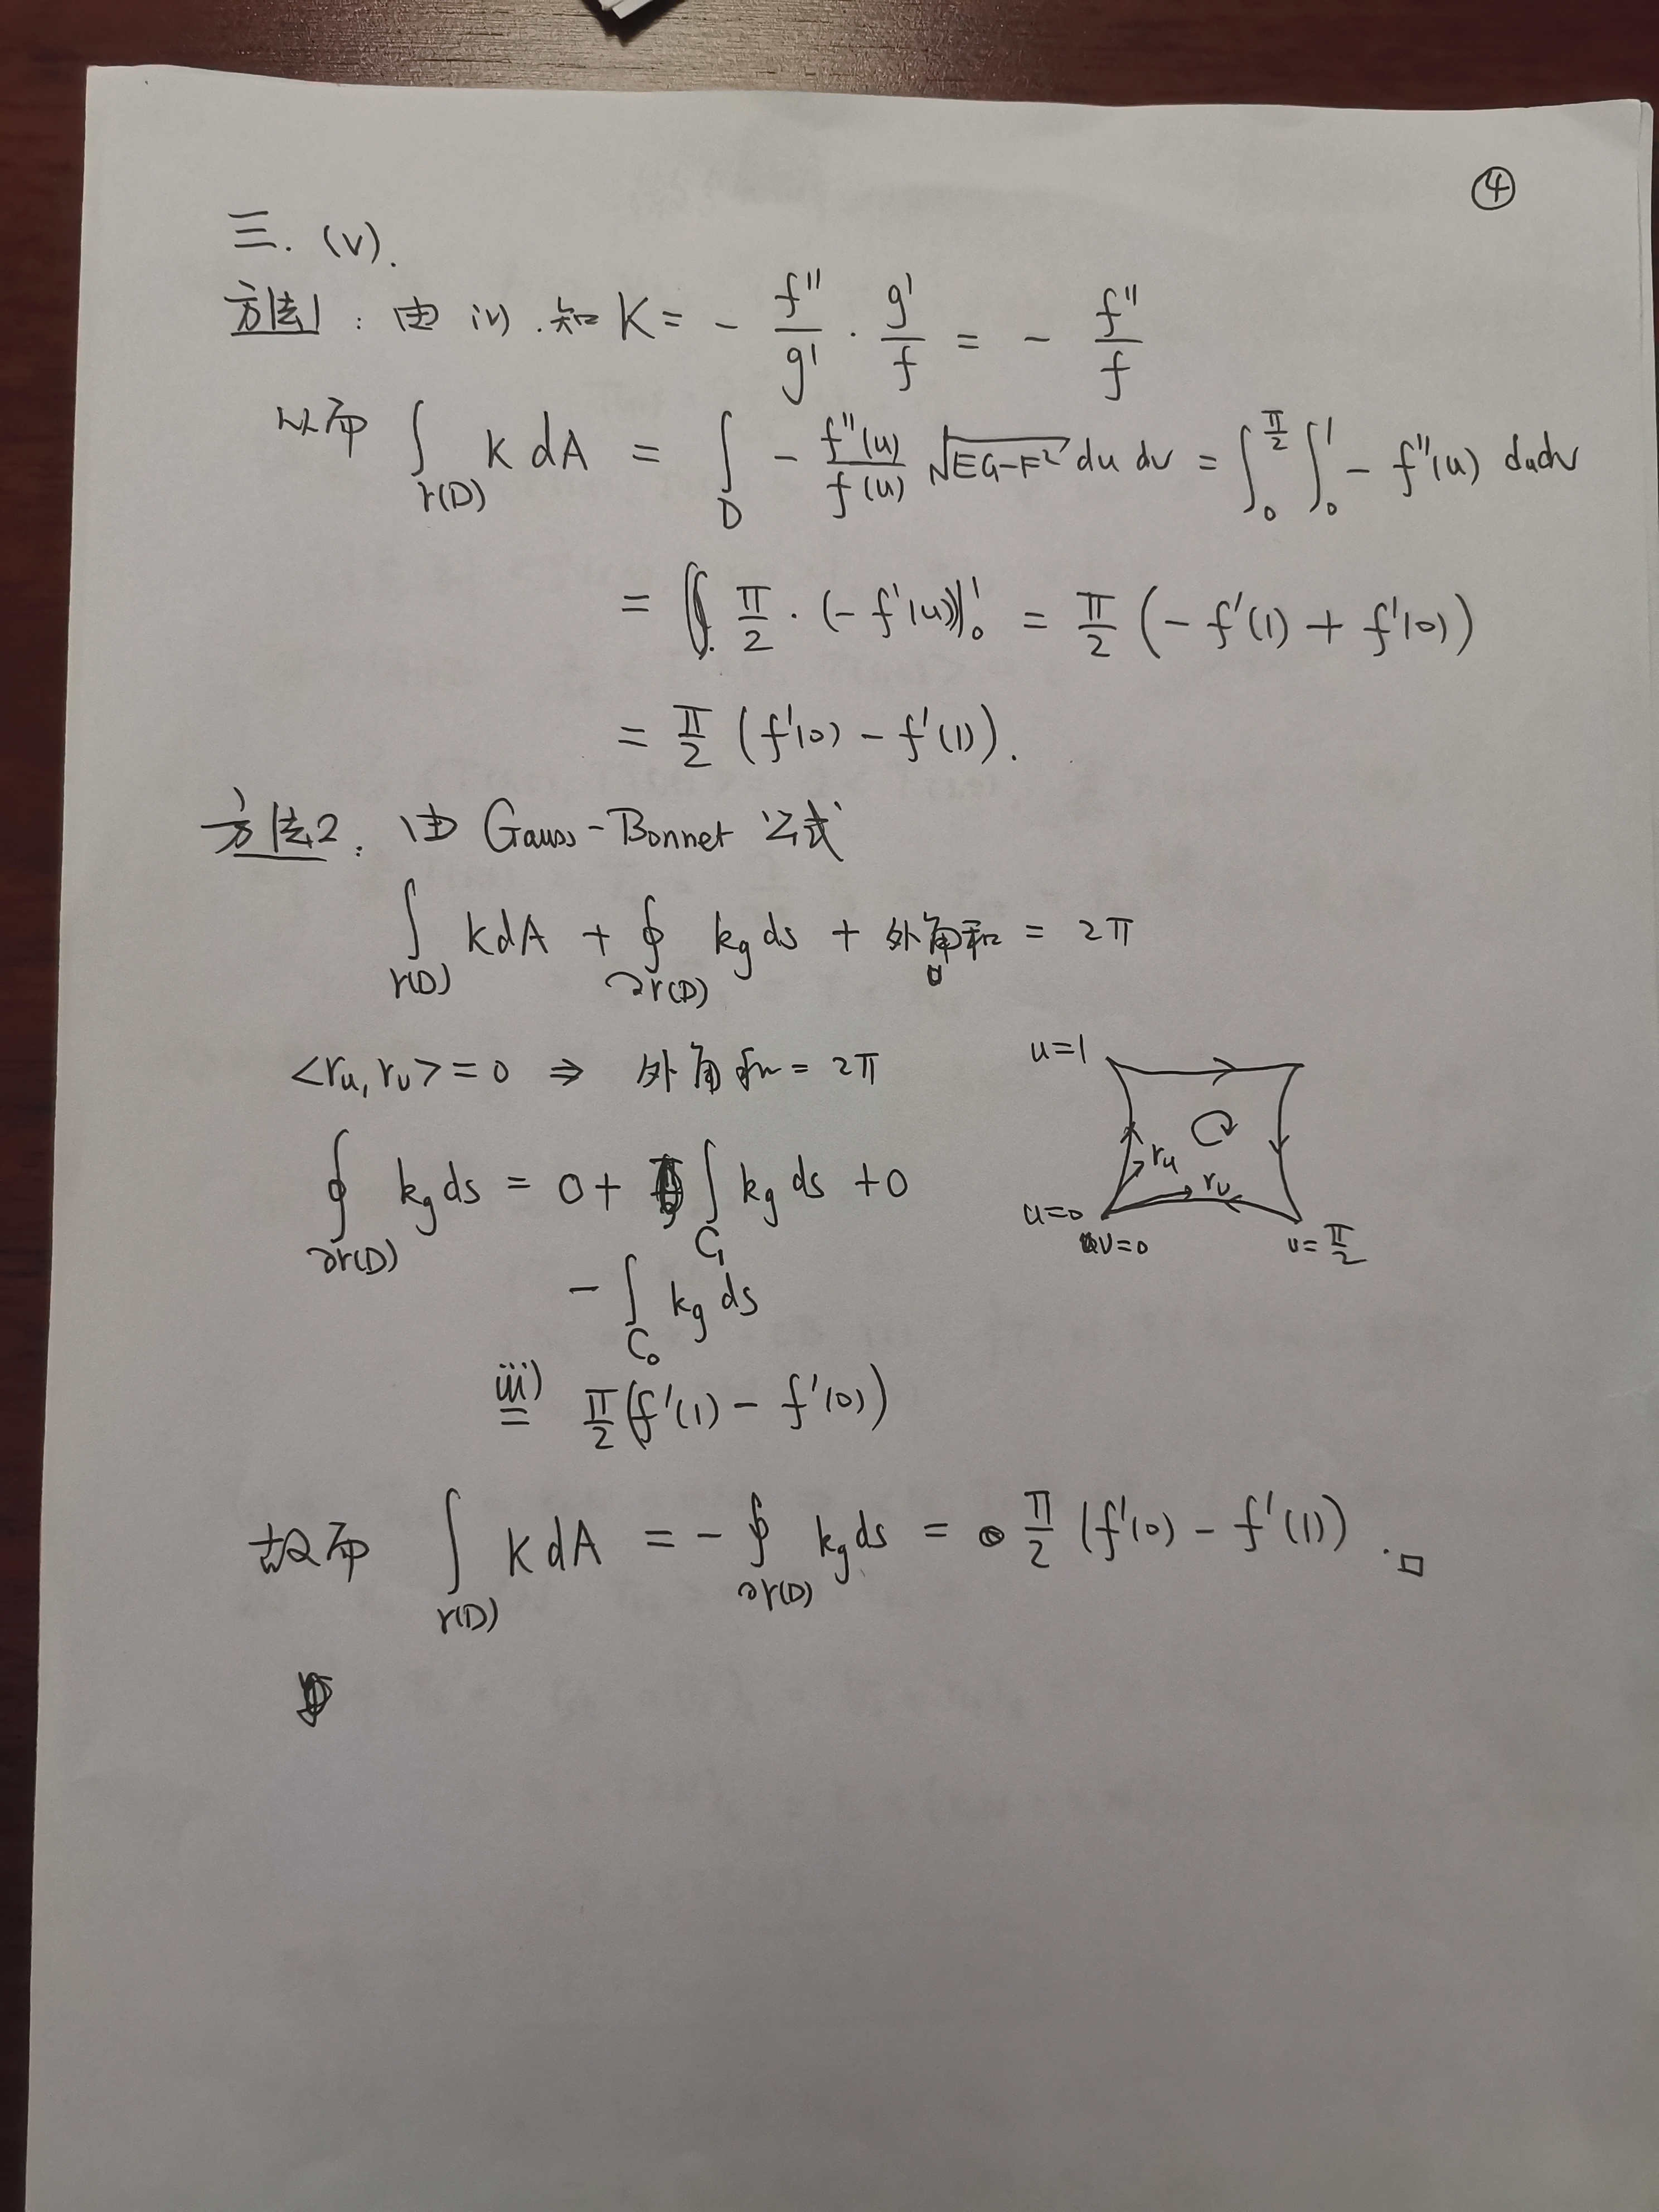 ④
三. (v).
方法1: 由 iv). 知 K = - f''/g' · g'/f = - f''/f
从而 ∫_{r(D)} K dA = ∫_D - f''(u)/f(u) √(EG-F²) du dv = ∫_0^{π/2} ∫_0^1 - f''(u) du dv
= π/2 · (- f'(u))|_0^1 = π/2 (- f'(1) + f'(0))
= π/2 (f'(0) - f'(1)).
方法2: 由 Gauss-Bonnet 公式
∫_{r(D)} K dA + ∮_{∂r(D)} kg ds + 外角和 = 2π
<ru, rv> = 0 ⇒ 外角和 = 2π
u=1
ru
rv
u=0
v=0
v=π/2
∮_{∂r(D)} kg ds = 0 + ∫_{C₁} kg ds + 0
- ∫_{C₀} kg ds
iii)= π/2 (f'(1) - f'(0))
故而 ∫_{r(D)} K dA = - ∮_{∂r(D)} kg ds = π/2 (f'(0) - f'(1)). □